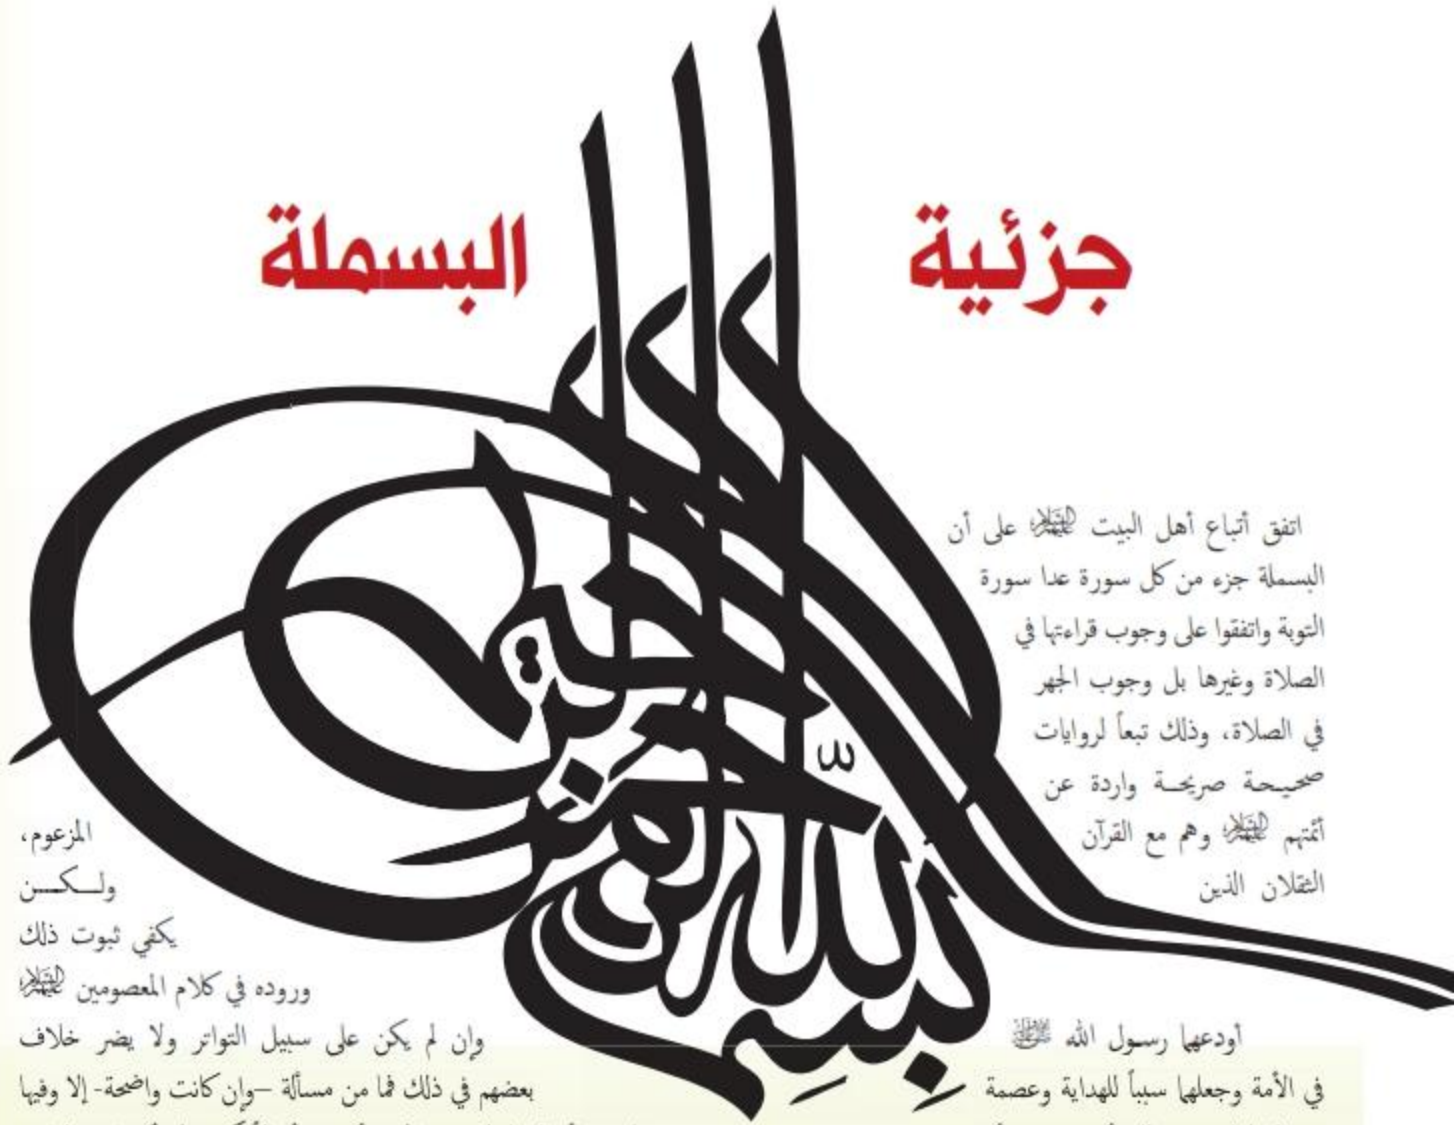 جزئية البسملة
بسم الله الرحمن الرحيم
اتفق أتباع أهل البيت عليهم السلام على أن
البسملة جزء من كل سورة عدا سورة
التوبة واتفقوا على وجوب قراءتها في
الصلاة وغيرها بل وجوب الجهر
في الصلاة، وذلك تبعاً لروايات
صحيحة صريحة واردة عن
أئمتهم عليهم السلام وهم مع القرآن
الثقلان الذين
أودعهما رسول الله
في الأمة وجعلهما سبباً للهداية وعصمة
المزعوم،
ولكن
يكفي ثبوت ذلك
وروده في كلام المعصومين عليهم السلام
وإن لم يكن على سبيل التواتر ولا يضر خلاف
بعضهم في ذلك فما من مسألة –وإن كانت واضحة- إلا وفيها